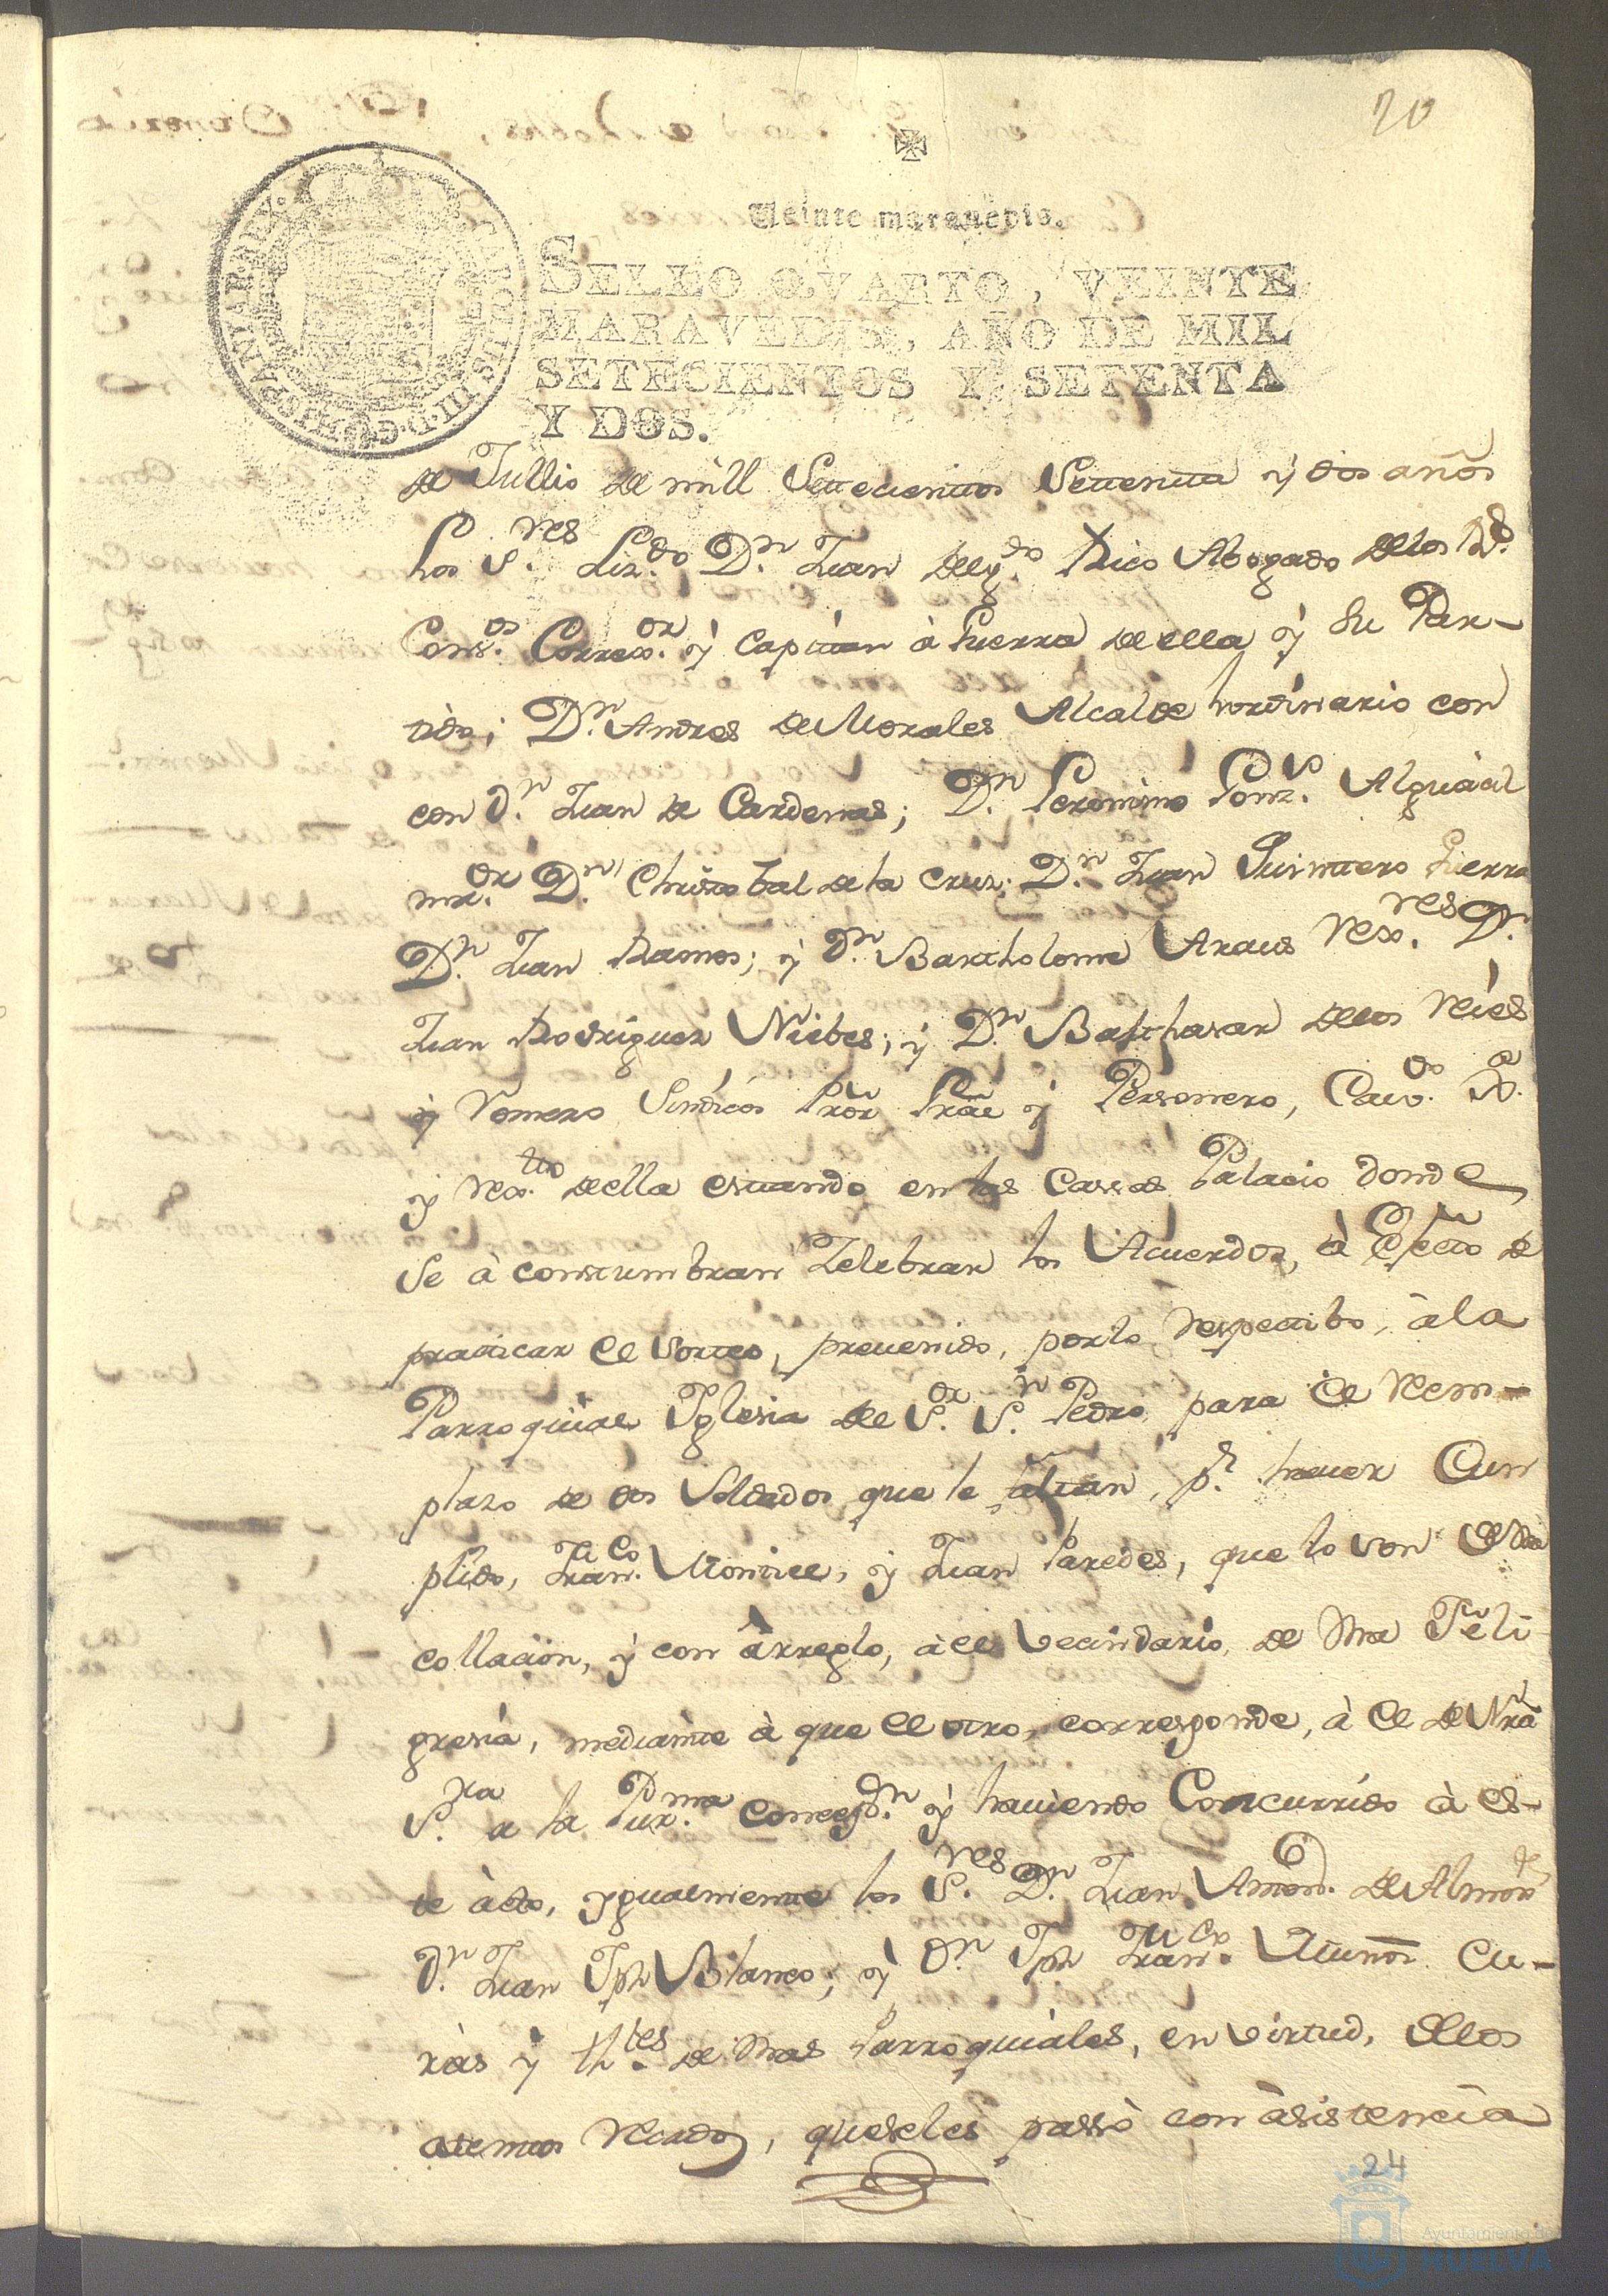 20
Veinte maravedis.
SELLO QVARTO, VEINTE
MARAVEDIS, AÑO DE MIL
SETECIENTOS Y SETENTA
Y DOS.
de Jullio de mill Settecientos Settenta y dos años
Los S.res Liz.do D.n Juan Delg.do Rico Abogado de los R.s
Cons.os Correx.or y Capitan à Guerra de ella y su Par-
tido; D.n Andres de Morales Alcalde hordinario con
con D.n Juan de Cardenas; D.n Geronimo Gonz.s Alguacil
mr.or D.n Christobal de la Cruz. D.n Juan Quintero Guerra
D.n Juan Ramos; y D.n Bartholome Araus Rex.res D.n
Juan Rodriguez Niebes; y D.n Balthasar de los Reies
y Romero Sindicos Prõr Grãl y Personero, Cav.do R.
y Rex.to de ella estando en las Cassas Palacio donde
Se à constumbran Zelebrar los Acuerdos, à Efecto de
practicar el Sorteo, prevenido, por lo respectibo, à la
Parroquial Yglesia de S.or S.n Pedro, para el Reem-
plazo de dos Soldados que le faltan, p.r haver Cun
plido, Fran.co Montiel, y Juan Paredes, que lo son de dha
collacion, y con àrreglo, à el Vecindario, de dha Feli-
gresia, mediante à que el otro, corresponde, à el de Nrã
S.ra a la Pur.ma Concepz.n y haviendo Concurrido à es-
te àcto, ygualmente los S.res D.n Juan Anton.o de Almon.te
D.n Juan Jph Blanco; y D.n Jph Fran.co Muñoz Cu-
ras y th.tes de dhas Parroquiales, en virtud, de los
atentos Recados, que se les passò con àsistencia
24
Ayuntamiento de
HUELVA